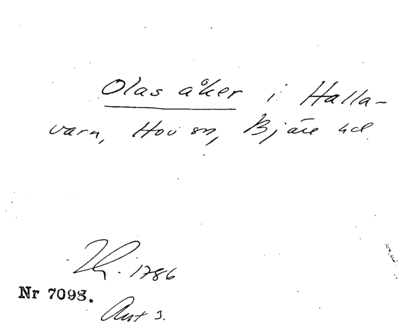 Olas åker i Halla-
varn, Hov sn, Bjäre hd
1786
Nr 7098.
Ant 3.